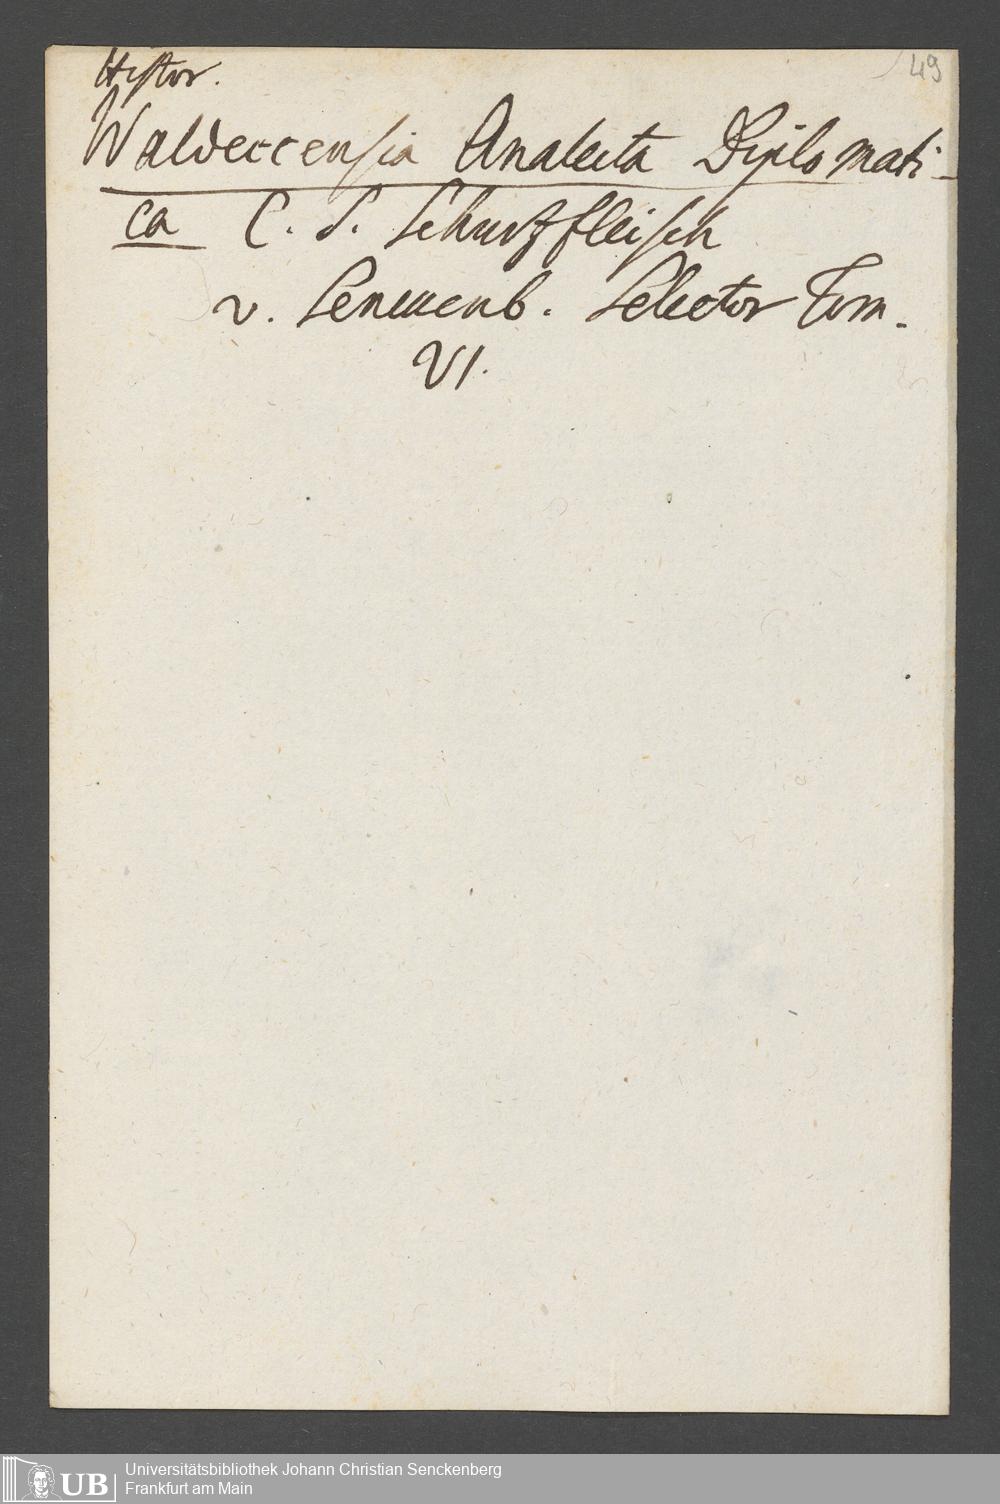 Histor.
49
Waldeccensia Analecta Diplomati-
ca C. S. Schurzfleisch
v. Senckenb. Selector Tom.
VI.
UB
Universitätsbibliothek Johann Christian Senckenberg
Frankfurt am Main